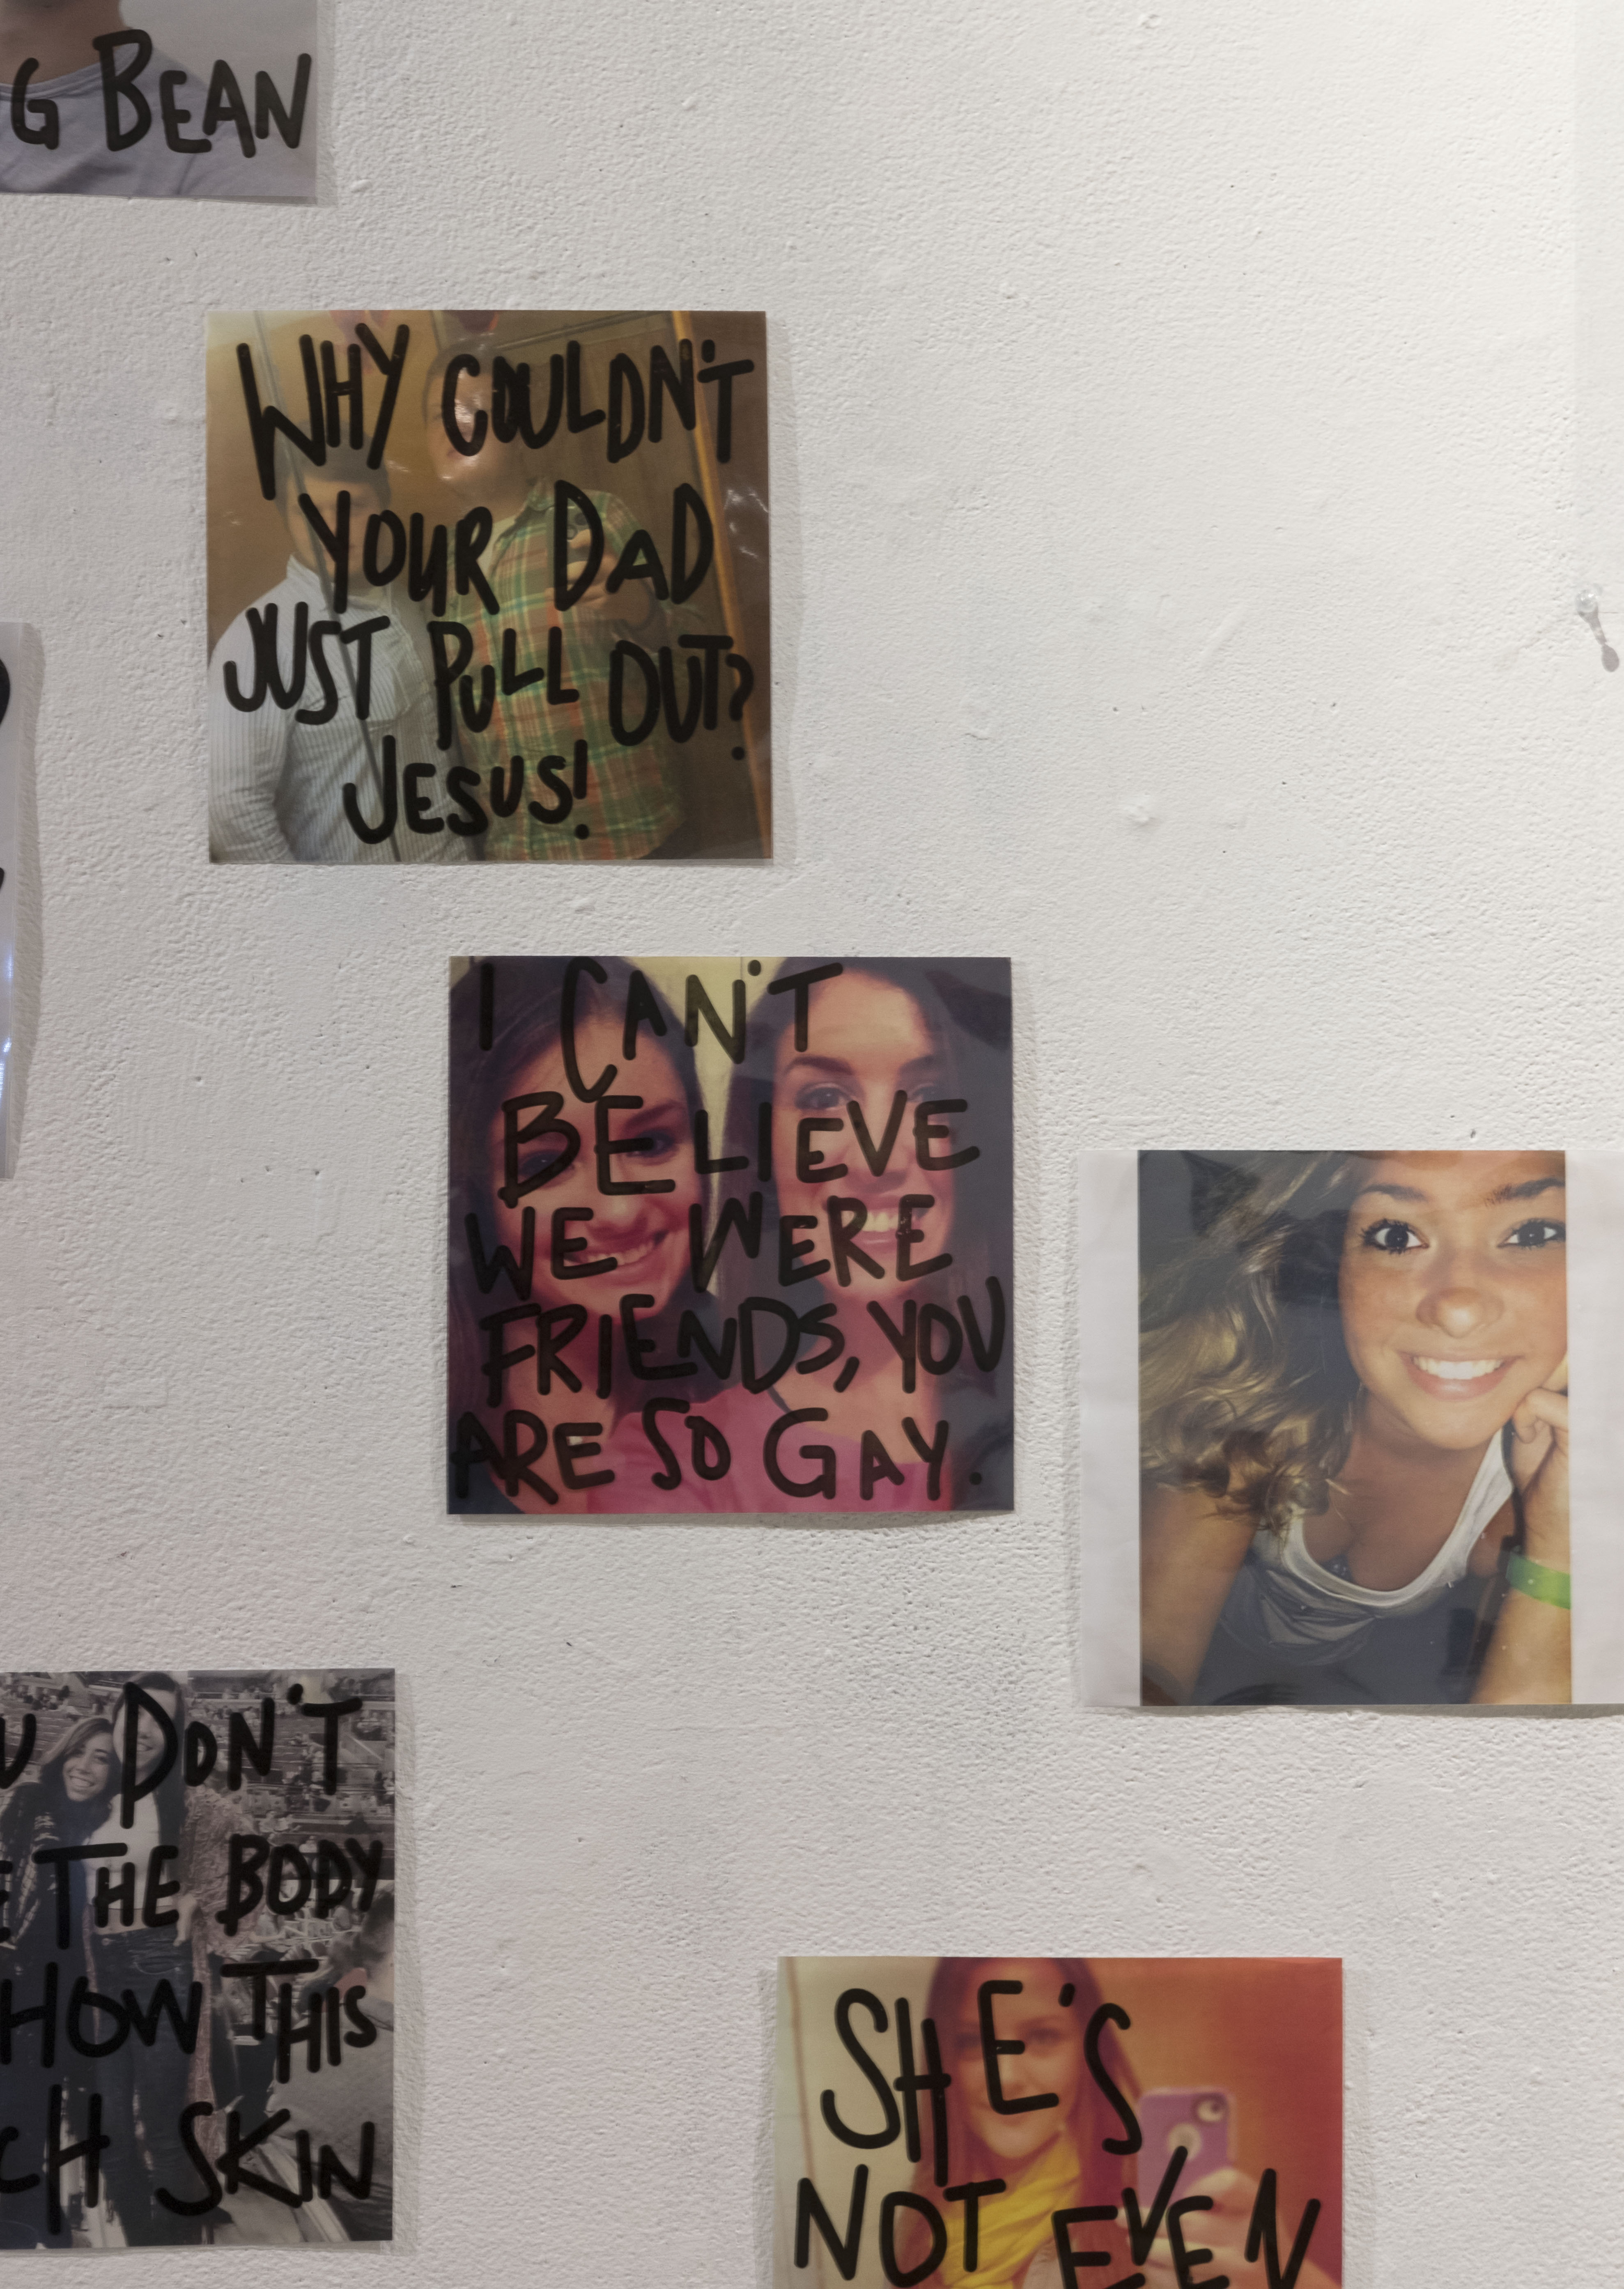 G BEAN
WHY COULDN'T
YOUR DAD
JUST PULL OUT?
JESUS!
I CAN'T
BELIEVE
WE WERE
FRIENDS, YOU
ARE SO GAY.
DON'T
THE BODY
HOW THIS
CH SKIN
SHE'S
NOT EVEN